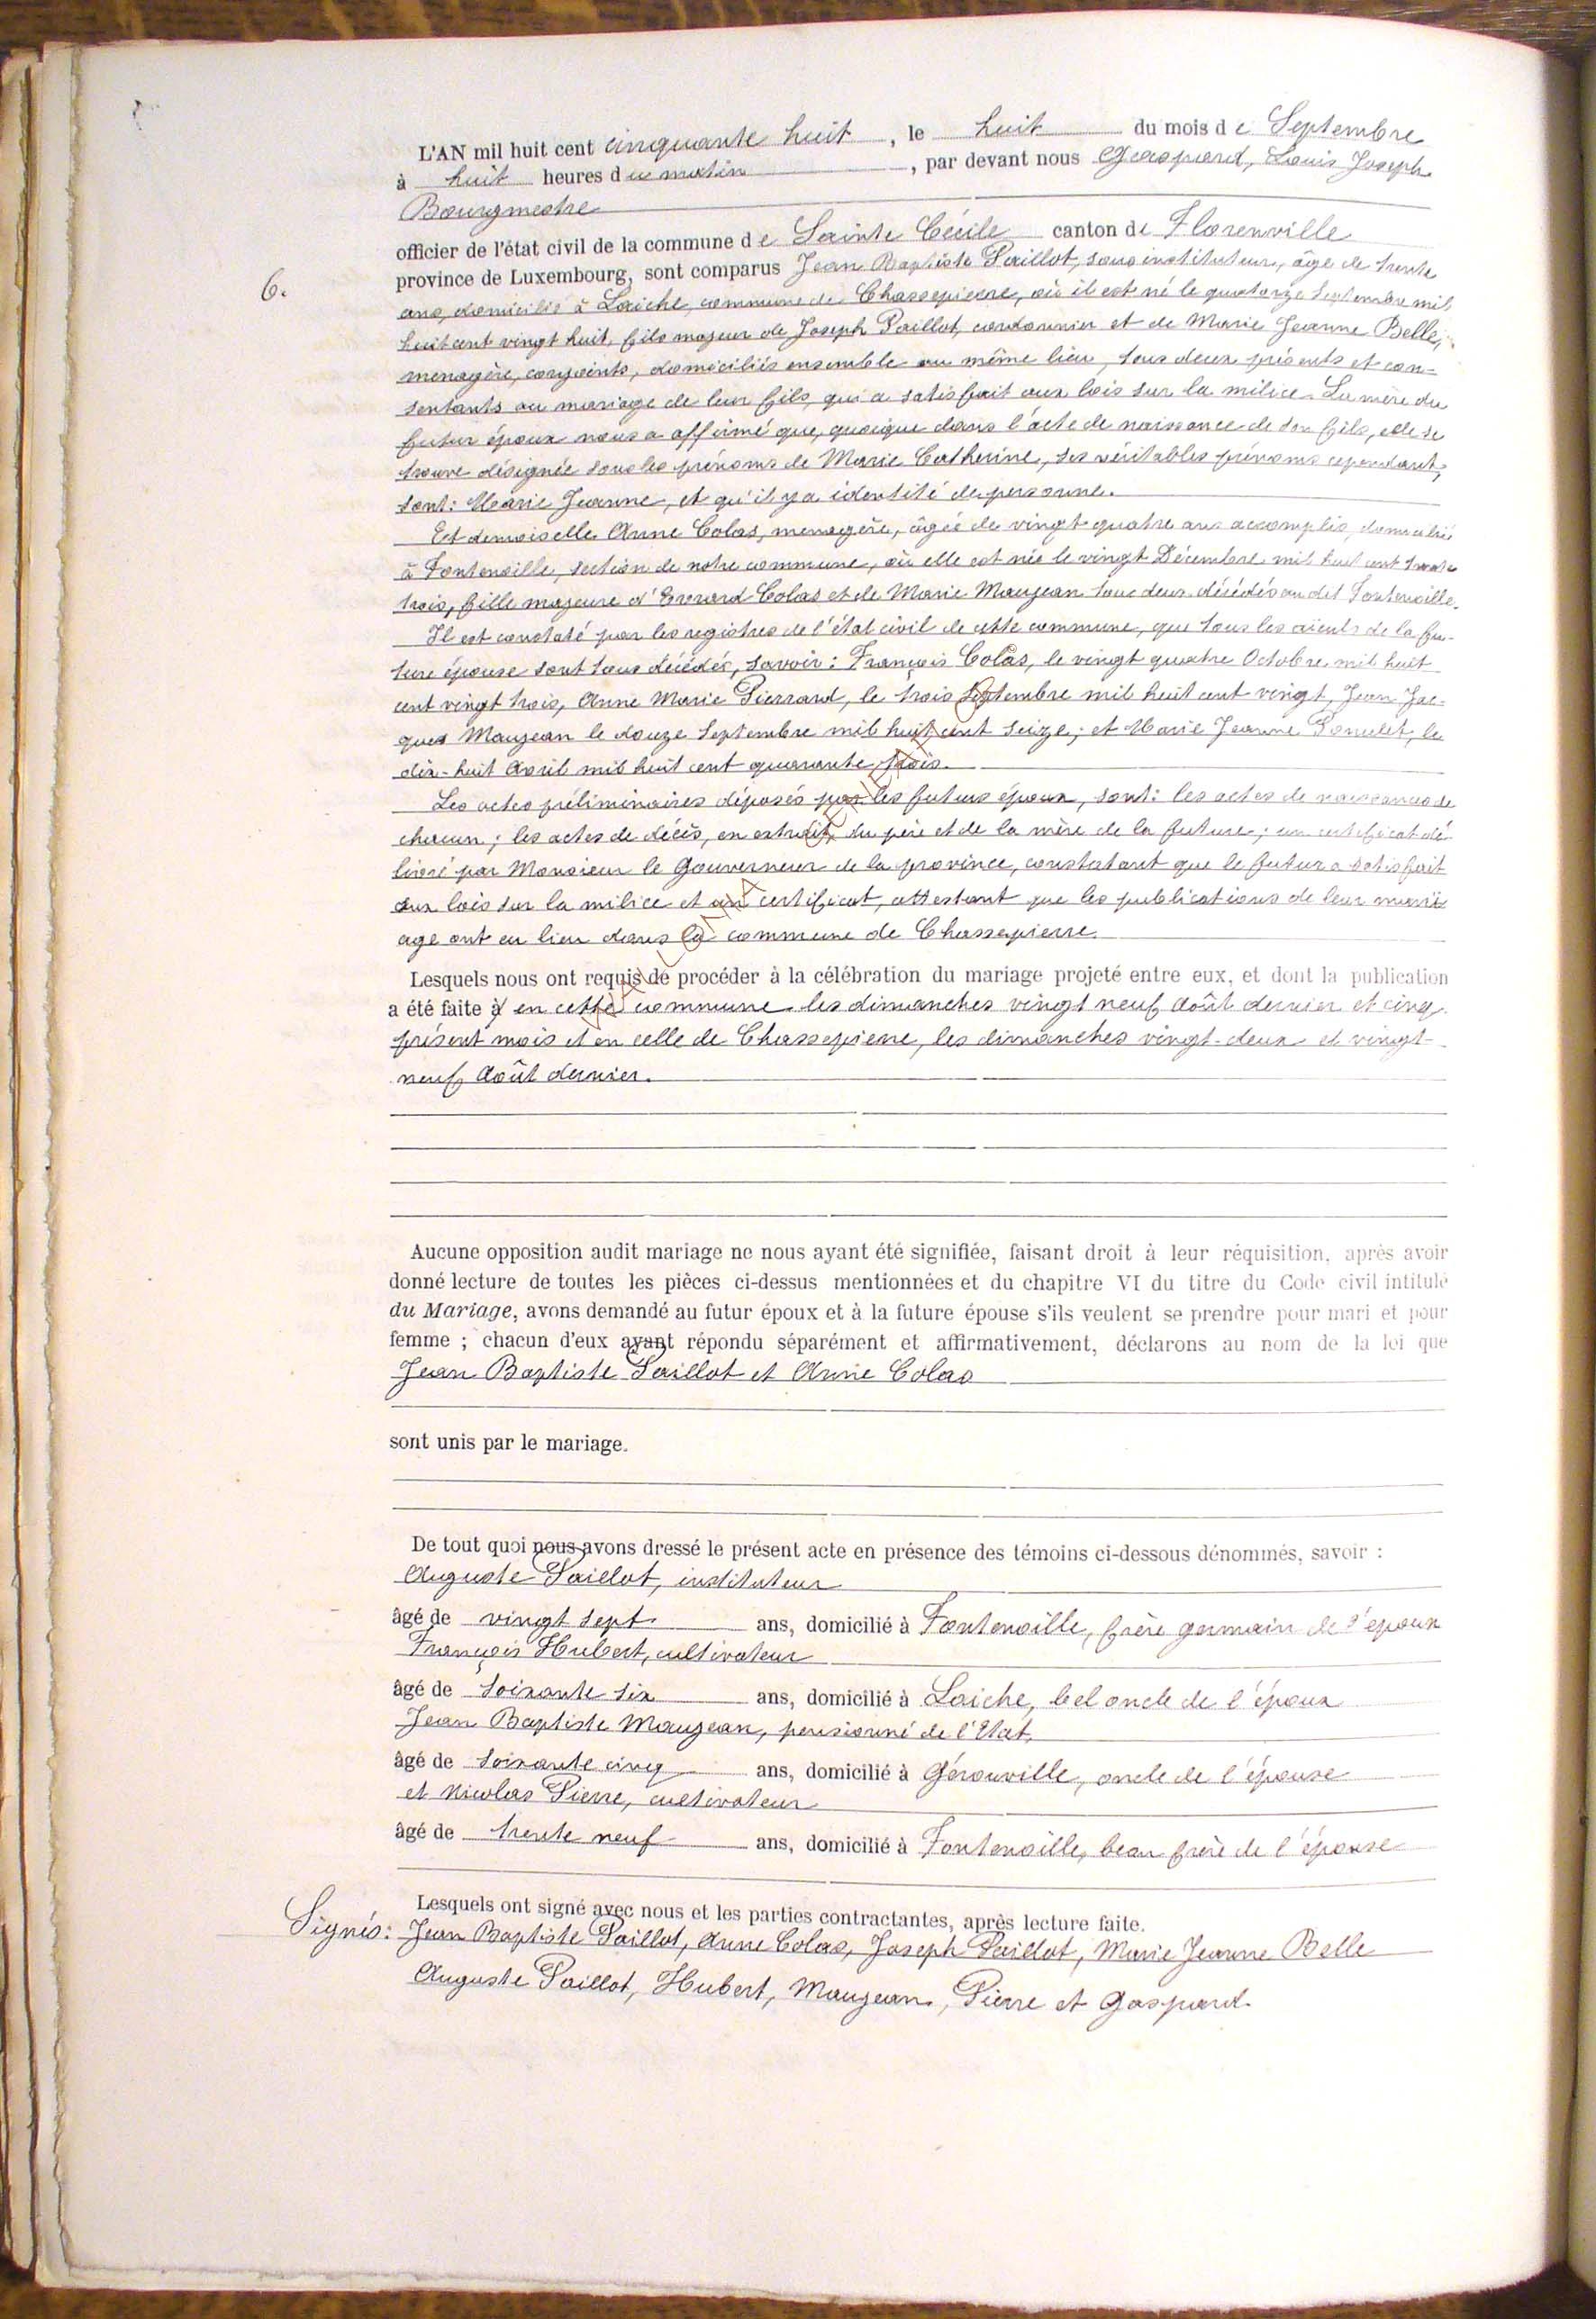 L'AN mil huit cent cinquante huit, le huit du mois de Septembre
à huit heures du matin, par devant nous Gaspard, Louis Joseph
Bourgmestre
officier de l'état civil de la commune de Sainte Cécile canton de Florenville
6.
province de Luxembourg, sont comparus Jean Baptiste Paillot, sous instituteur, âgé de trente
ans, domicilié à Laiche, commune de Chassepierre, où il est né le quatorze Septembre mil
huit cent vingt huit, fils majeur de Joseph Paillot, cordonnier et de Marie Jeanne Belle,
menagère, conjoints, domiciliés ensemble au même lieu, tous deux présents et con-
sentants au mariage de leur fils, qui a satisfait aux lois sur la milice. La mère du
futur époux nous a affirmé que, quoique dans l'acte de naissance de son fils, elle se
trouve désignée sous les prénoms de Marie Catherine, ses véritables prénoms cependant,
sont: Marie Jeanne, et qu'il y a identité de personne.
Et demoiselle Anne Colas, menagère, âgée de vingt quatre ans accomplis, domiciliée
à Fontenoille, section de notre commune, où elle est née le vingt Décembre mil huit cent trente
trois, fille majeure d'Everard Colas et de Marie Maujean tous deux décédés au dit Fontenoille.
Il est constaté par les registres de l'état civil de cette commune, que tous les aieuls de la fu-
ture épouse sont tous décédés, savoir: François Colas, le vingt quatre Octobre mil huit
cent vingt trois, Anne Marie Pierrard, le trois Septembre mil huit cent vingt, Jean Jac-
ques Maujean le douze Septembre mil huit cent seize; et Marie Jeanne Poncelet, le
dix-huit Avril mil huit cent quarante trois.
Les actes préliminaires déposés par les futurs époux, sont: les actes de naissances de
chacun; les actes de décès, en extrait, du père et de la mère de la future; un certificat dé-
livré par Monsieur le Gouverneur de la province, constatant que le futur a satisfait
aux lois sur la milice et un certificat, attestant que les publications de leur mari-
age ont eu lieu dans la commune de Chassepierre.
Lesquels nous ont requis de procéder à la célébration du mariage projeté entre eux, et dont la publication
a été faite à en cette commune les dimanches vingt neuf Août dernier et cinq
présent mois et en celle de Chassepierre, les dimanches vingt-deux et vingt-
neuf Août dernier.
Aucune opposition audit mariage ne nous ayant été signifiée, faisant droit à leur réquisition, après avoir
donné lecture de toutes les pièces ci-dessus mentionnées et du chapitre VI du titre du Code civil intitulé
du Mariage, avons demandé au futur époux et à la future épouse s'ils veulent se prendre pour mari et pour
femme ; chacun d'eux ayant répondu séparément et affirmativement, déclarons au nom de la loi que
Jean Baptiste Paillot et Anne Colas
sont unis par le mariage.
De tout quoi nous avons dressé le présent acte en présence des témoins ci-dessous dénommés, savoir :
Auguste Paillot, instituteur
âgé de vingt sept ans, domicilié à Fontenoille, frère germain de l'époux
François Hubert, cultivateur
âgé de soixante six ans, domicilié à Laiche, bel oncle de l'époux
Jean Baptiste Maujean, pensionné de l'Etat,
âgé de soixante cinq ans, domicilié à Gérouville, oncle de l'épouse
et Nicolas Pierre, cultivateur
âgé de trente neuf ans, domicilié à Fontenoille, beau frère de l'épouse
Lesquels ont signé avec nous et les parties contractantes, après lecture faite.
Signés: Jean Baptiste Paillot, Anne Colas, Joseph Paillot, Marie Jeanne Belle
Auguste Paillot, Hubert, Maujean, Pierre et Gaspard.